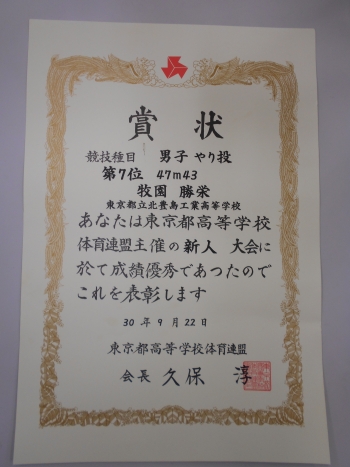 賞状
競技種目 男子 やり投
第7位 47m43
牧園 勝栄
東京都立北豊島工業高等学校
あなたは東京都高等学校
体育連盟主催の 新人 大会に
於て成績優秀であつたので
これを表彰します
30 年 9 月 22 日
東京都高等学校体育連盟
会長 久保 淳